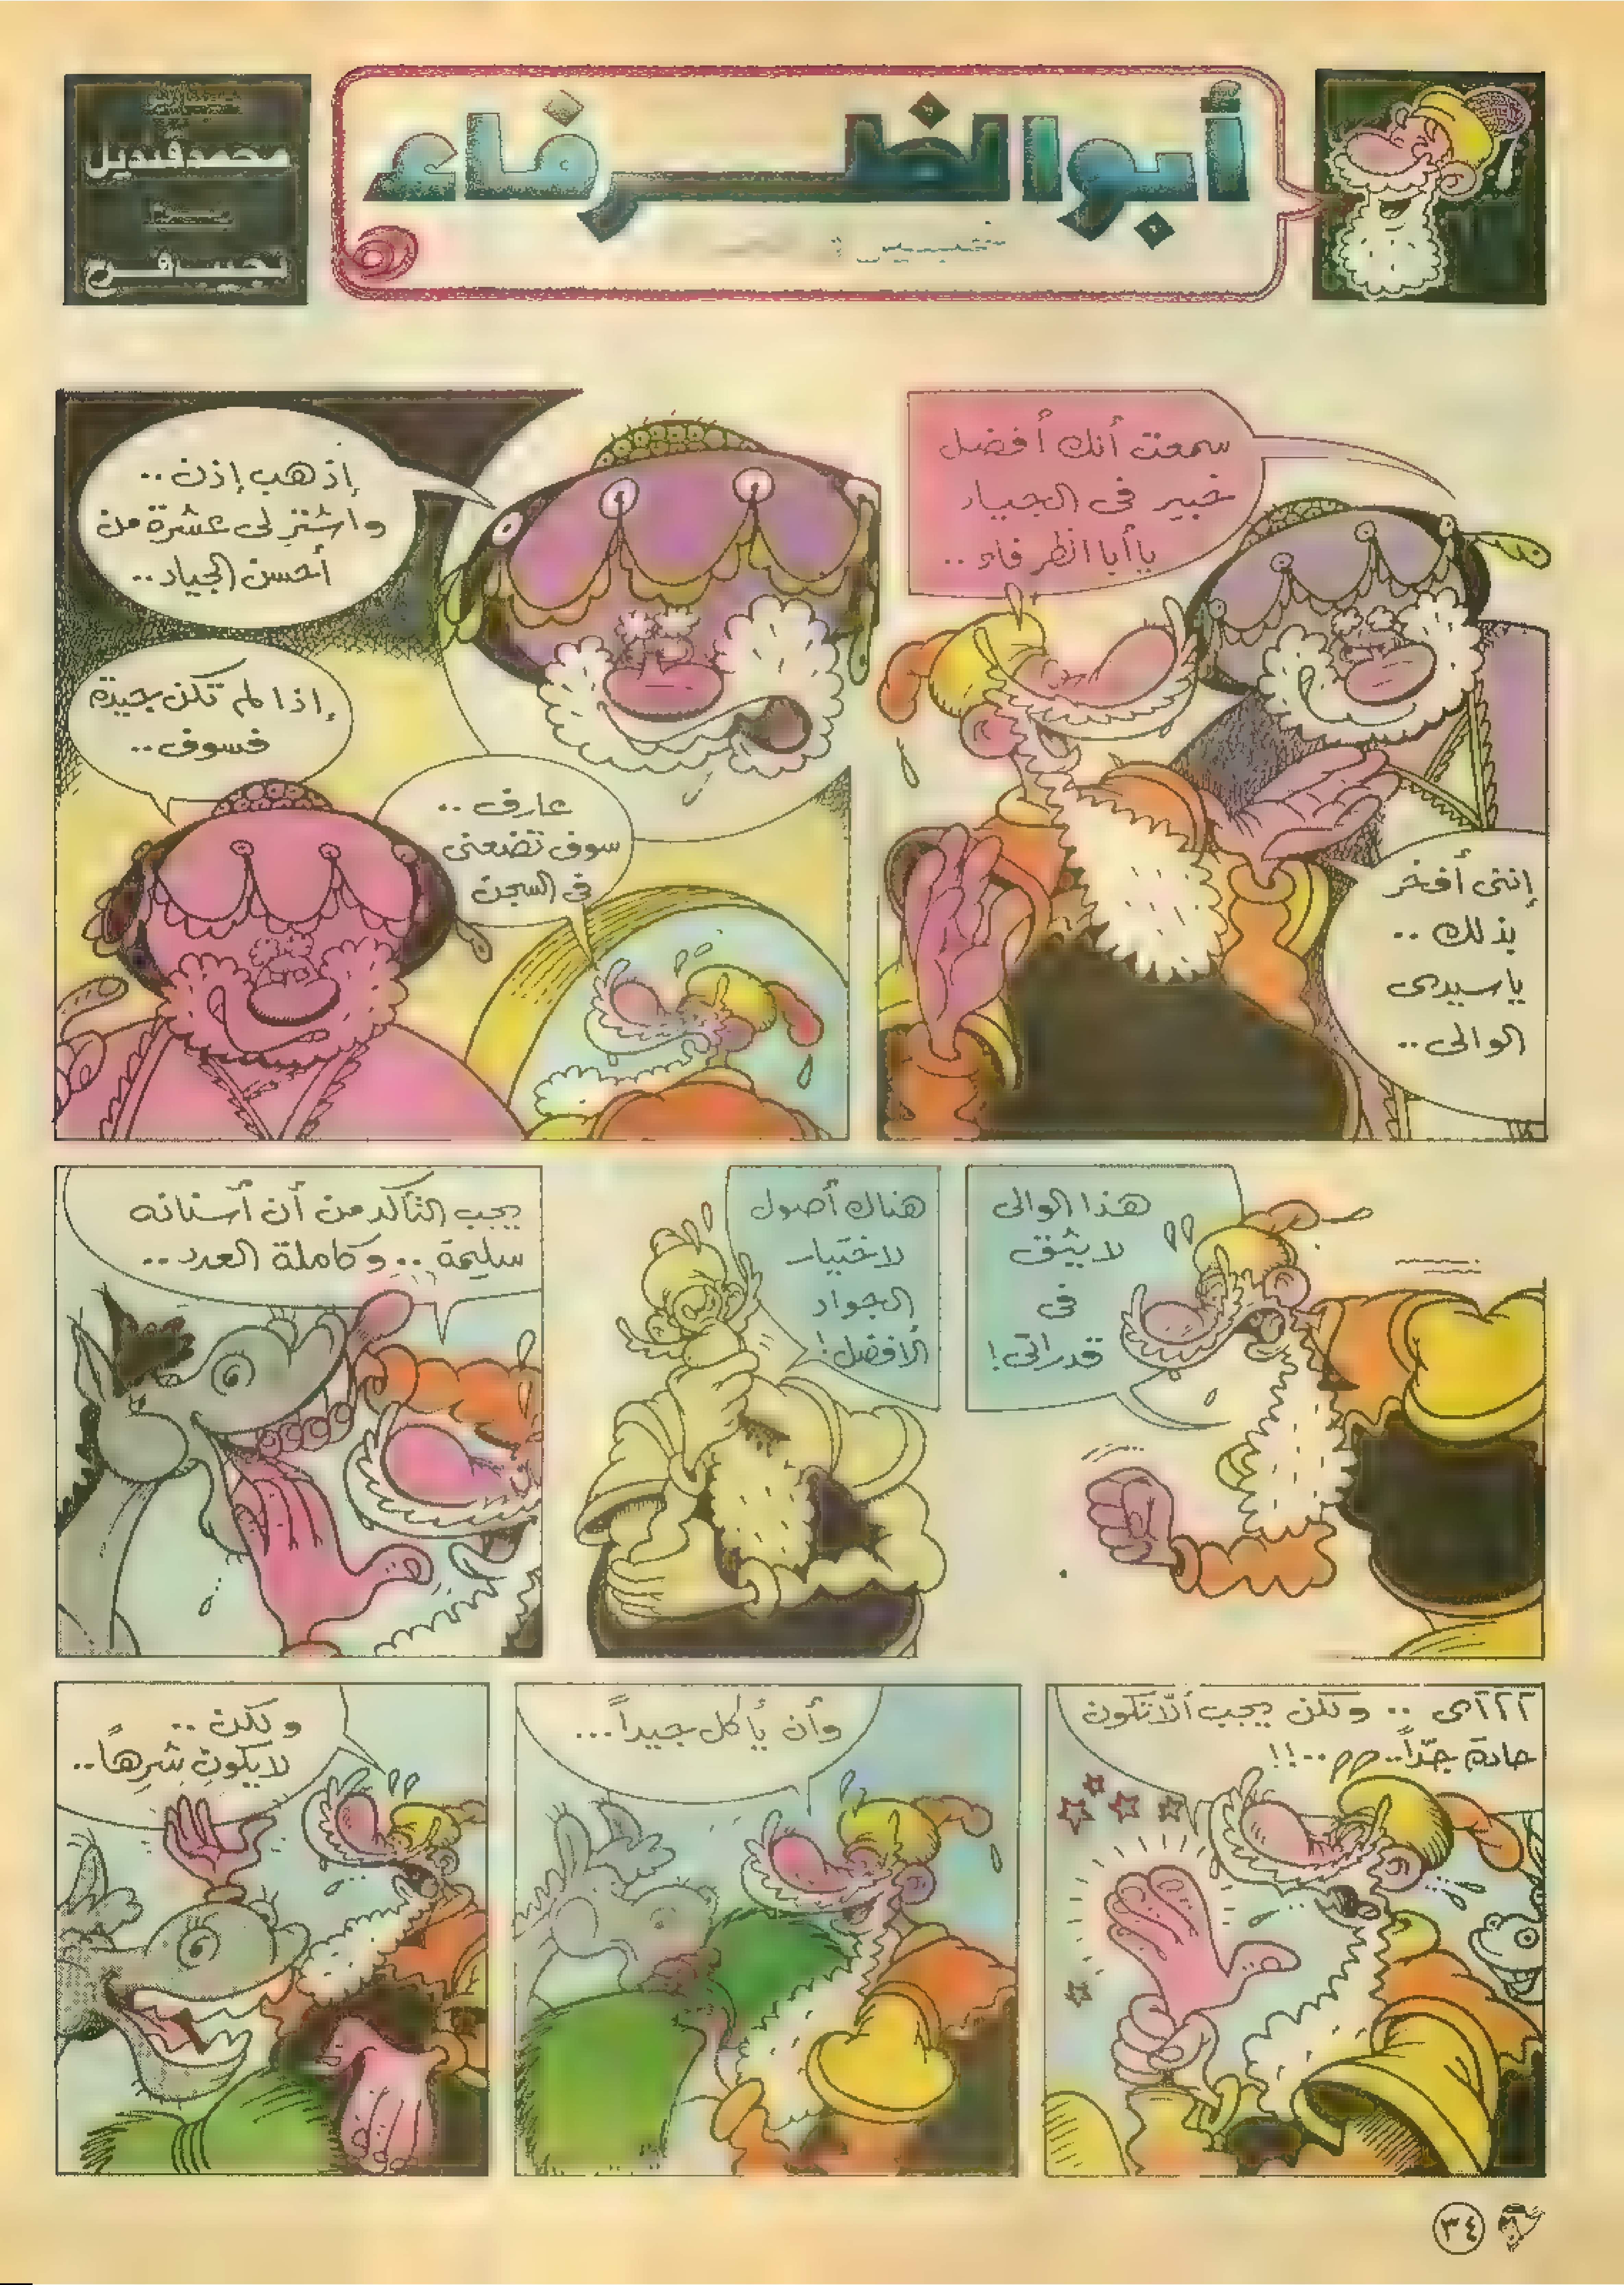 أبو الظرفاء
محمد قنديل
نجيب فرج
سمعت أنك أفضل
خبير فى الجياد
يا أبا الظرفاء..
إننى أفخر
بذلك..
يا سيدى
الوالى..
إذهب إذن..
واشترِ لى عشرة من
أحسن الجياد..
إذا لم تكن جيدة
فسوف..
عارف..
سوف تضعنى
فى السجن
هذا الوالى
لا يثق
فى
قدراتى!
هناك أصول
لاختيار
الجواد
الأفضل!
يجب التأكد من أن أسنانه
سليمة.. وكاملة العدد..
آآآآى.. ولكن يجب ألّا تكون
حادة جدّاً..!!
وأن يأكل جيداً...
ولكن..
لا يكون شرِهاً..
٣٤